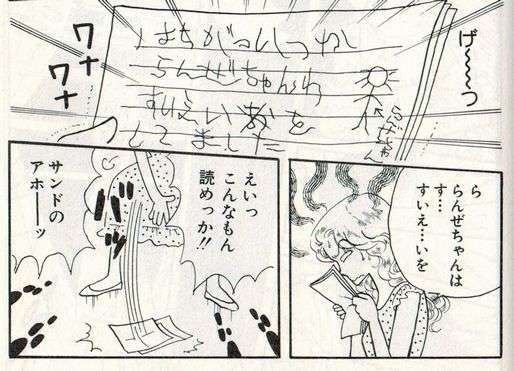 げ〜〜〜っ
はちがつしつかし
らんぜちゃんわ
すいえいおを
してました
らんぜちゃん
ワナ
ワナ
ら
らんぜちゃんは
す…
すいえ…いを
えいっ
こんなもん
読めっか!!
サンドの
アホーーッ